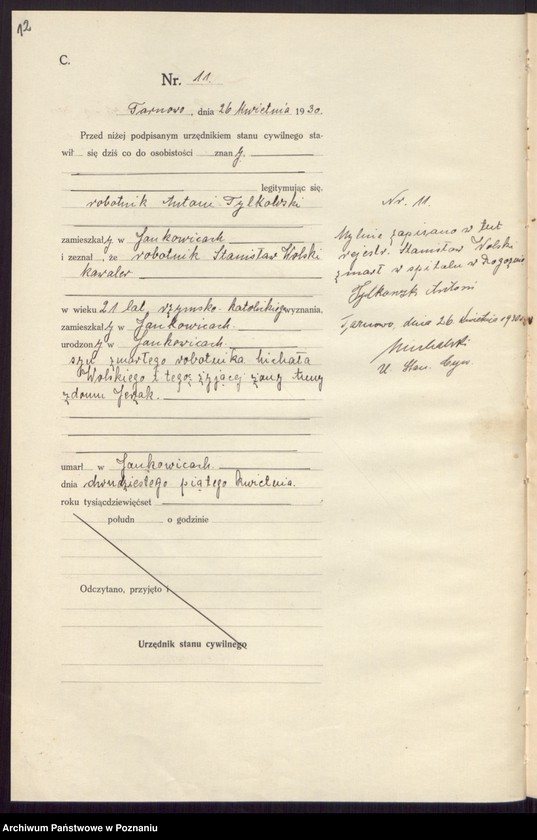 12
C.
Nr. 11.
Tarnowo, dnia 26 kwietnia 1930.
Przed niżej podpisanym urzędnikiem stanu cywilnego sta-
wił się dziś co do osobistości znany
legitymując się,
robotnik Antoni Tylkowski
zamieszkały w Jankowicach
i zeznał, że robotnik Stanisław Wolski
kawaler
w wieku 21 lat, rzymsko-katolickiego wyznania,
zamieszkały w Jankowicach
urodzony w Jankowicach
syn zmarłego robotnika Michała
Wolskiego i tegoż żyjącej żony
zdomu Jerzak.
umarł w Jankowicach
dnia dwudziestego piątego kwietnia
roku tysiącdziewięćset
połudn o godzinie
Odczytano, przyjęto i
Urzędnik stanu cywilnego
Nr. 11.
Mylnie zapisano w tut
rejestr. Stanisław Wolski
zmarł w szpitalu w
Antoni
Tarnowo, dnia 26 kwietnia 1930
U. Stan. Cyw.
Archiwum Państwowe w Poznaniu